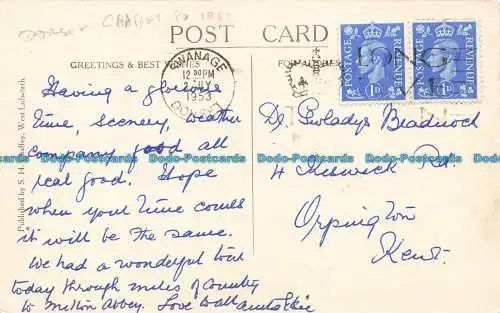 Dorset
POST CARD
GREETINGS & BEST WISHES
SWANAGE
12 30 PM
JLY
1953
DORSET
POSTAGE
REVENUE
1D
POSTAGE
REVENUE
1D
Published by S. H. Headley, West Lulworth.
Having a glorious
time, scenery, weather
company food all
real good. Hope
when your time comes
it will be the same.
We had a wonderful tour
today through miles of Country
to Milton Abbey. Love to all
Bradnock
4 Keswick Rd.
Orpington
Kent.
Dodo-Postcards Dodo-Postcards Dodo-Postcards Dodo-Postcards Dodo-Postcards Dodo-Postcards